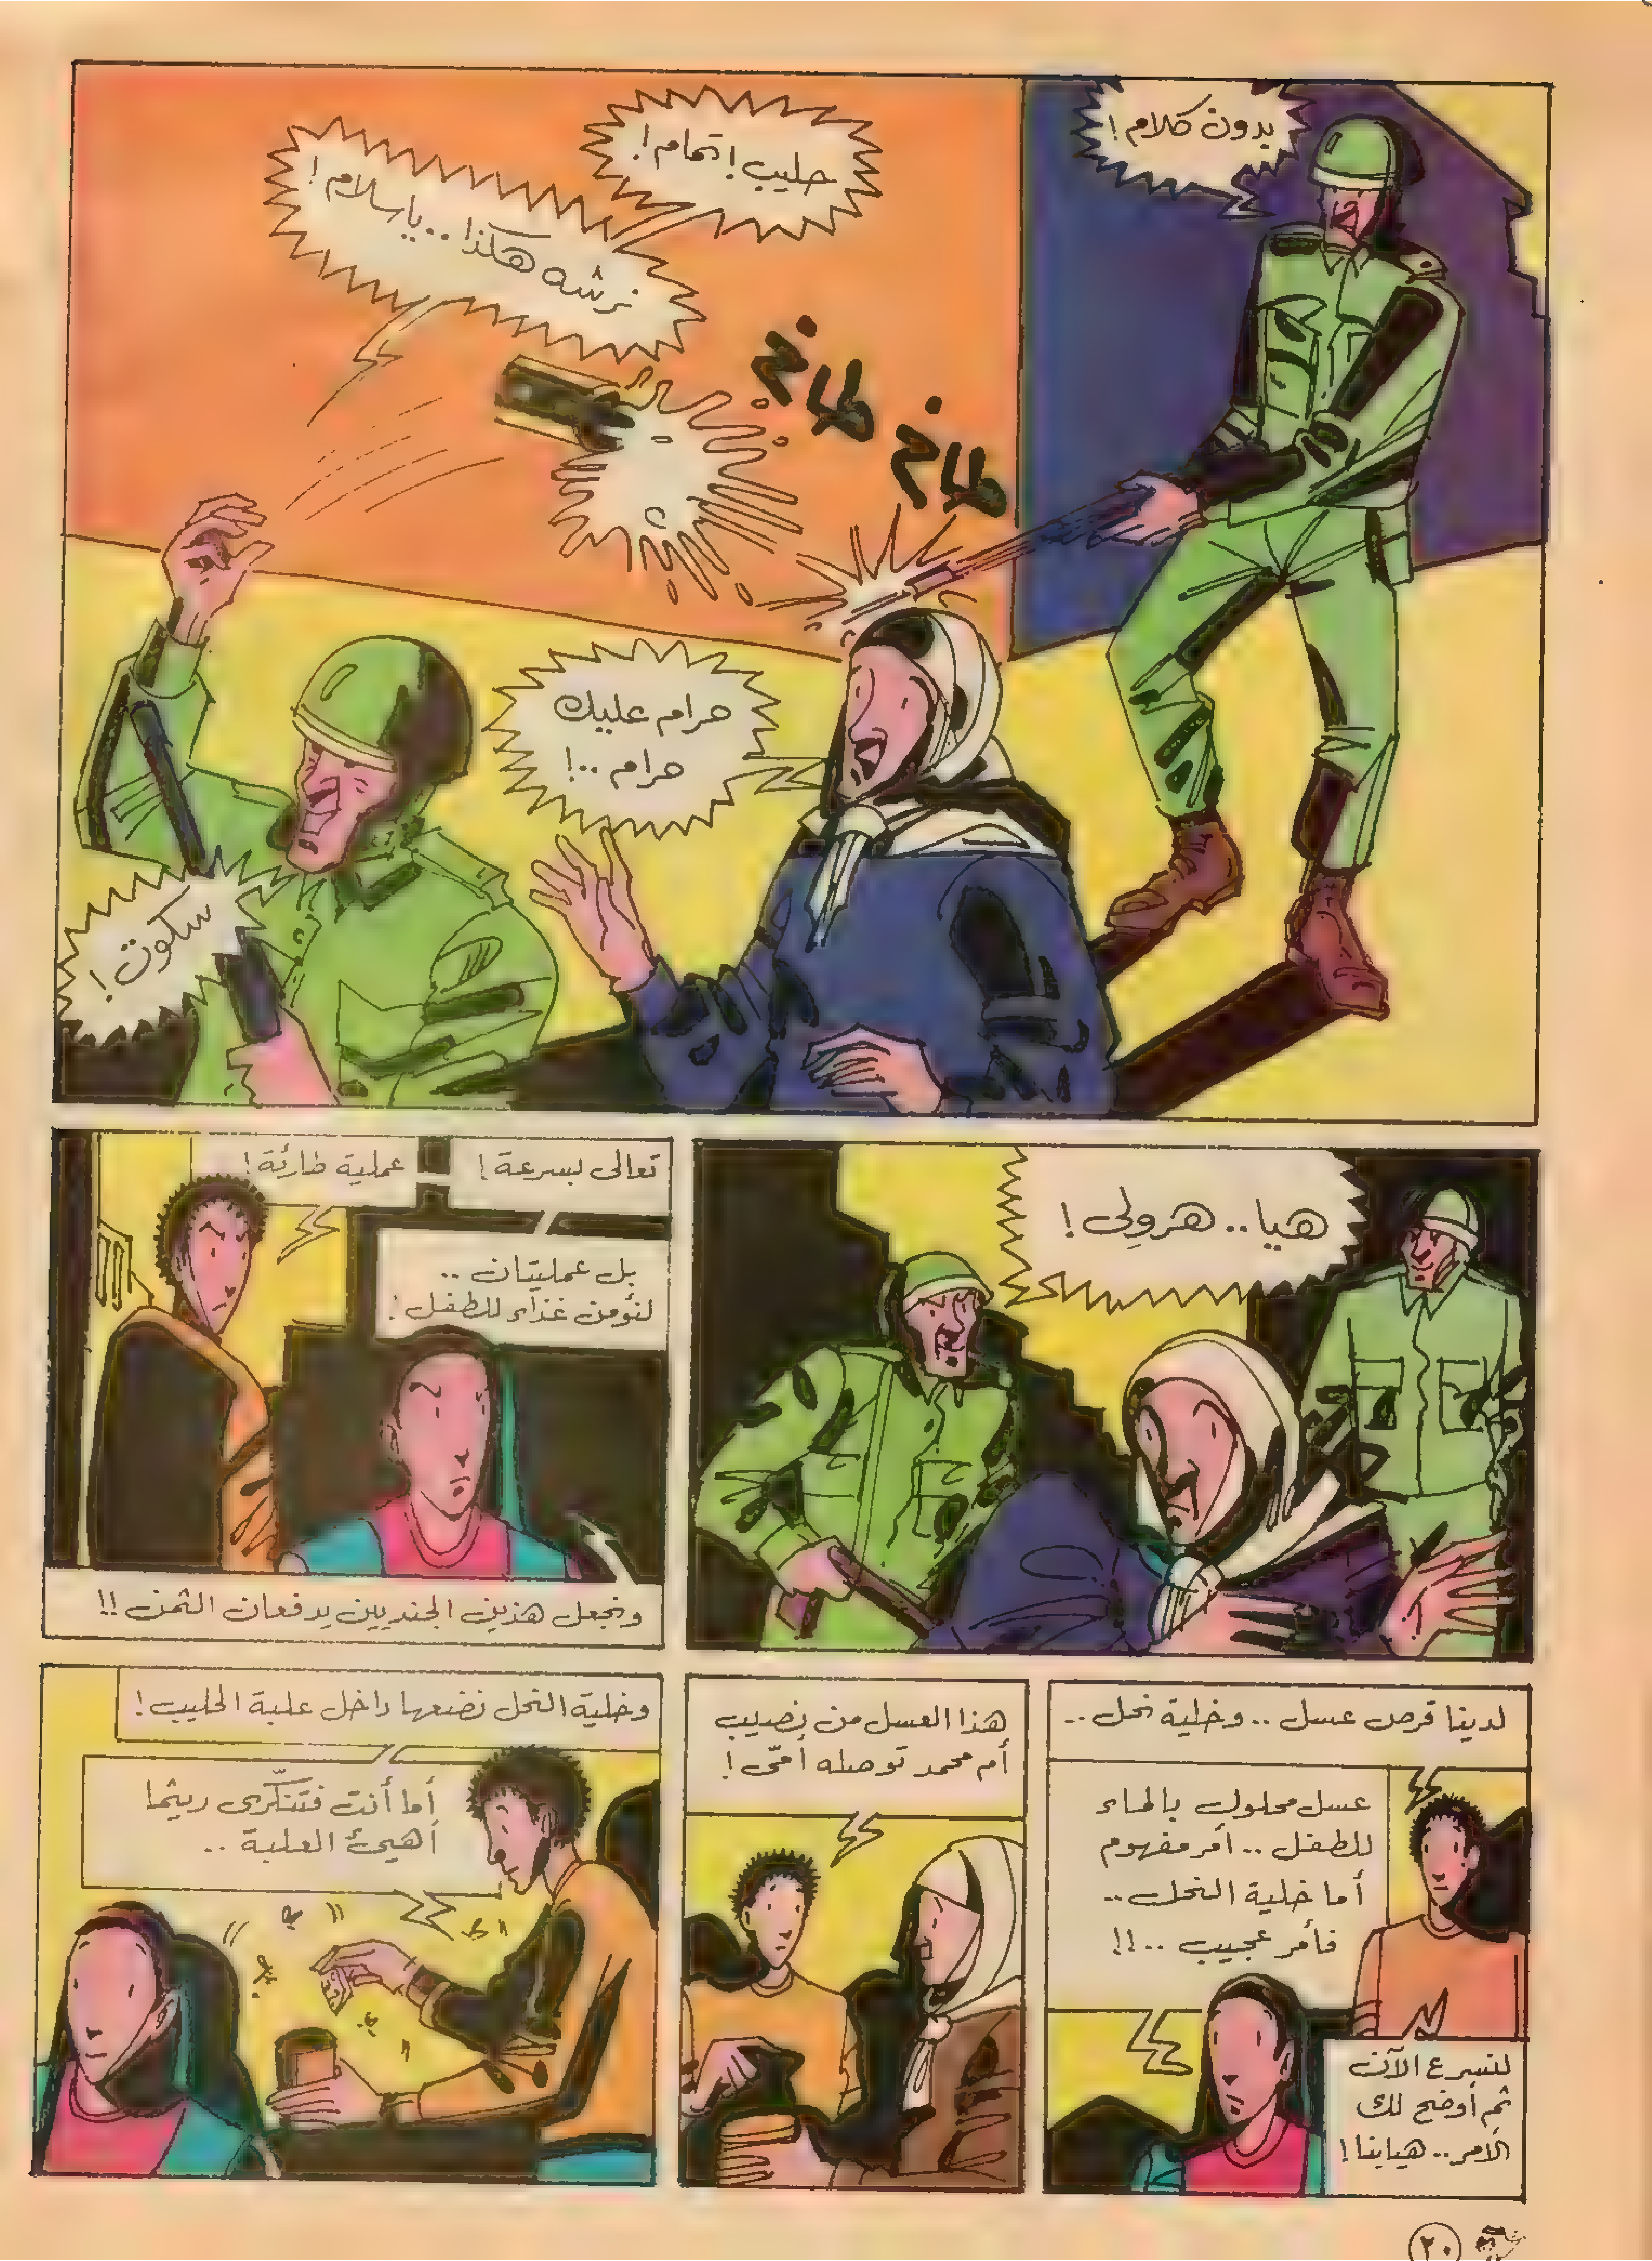 بدون كلام!
حليب! تمام!
نرشه هكذا.. ياسلام!
طاخ
طاخ
حرام عليك
حرام ..!
سكوت!
هيا.. هرولِى!
تعالى بسرعة!
عملية طارئة!
بل عمليتان ..
لنؤمن غذاء للطفل!
ونجعل هذين الجنديين يدفعان الثمن!!
لدينا قرص عسل .. وخلية نحل ..
عسل محلول بالماء
للطفل .. أمر مفهوم
أما خلية النحل ..
فأمر عجيب ..!!
لنسرع الآن
ثم أوضح لك
الأمر.. هيا بنا!
هذا العسل من نصيب
أم محمد توصله أمّى!
وخلية النحل نضعها داخل علبة الحليب!
أما أنت فتنكّرى ريثما
أهيئ العلبة ..
٢٠